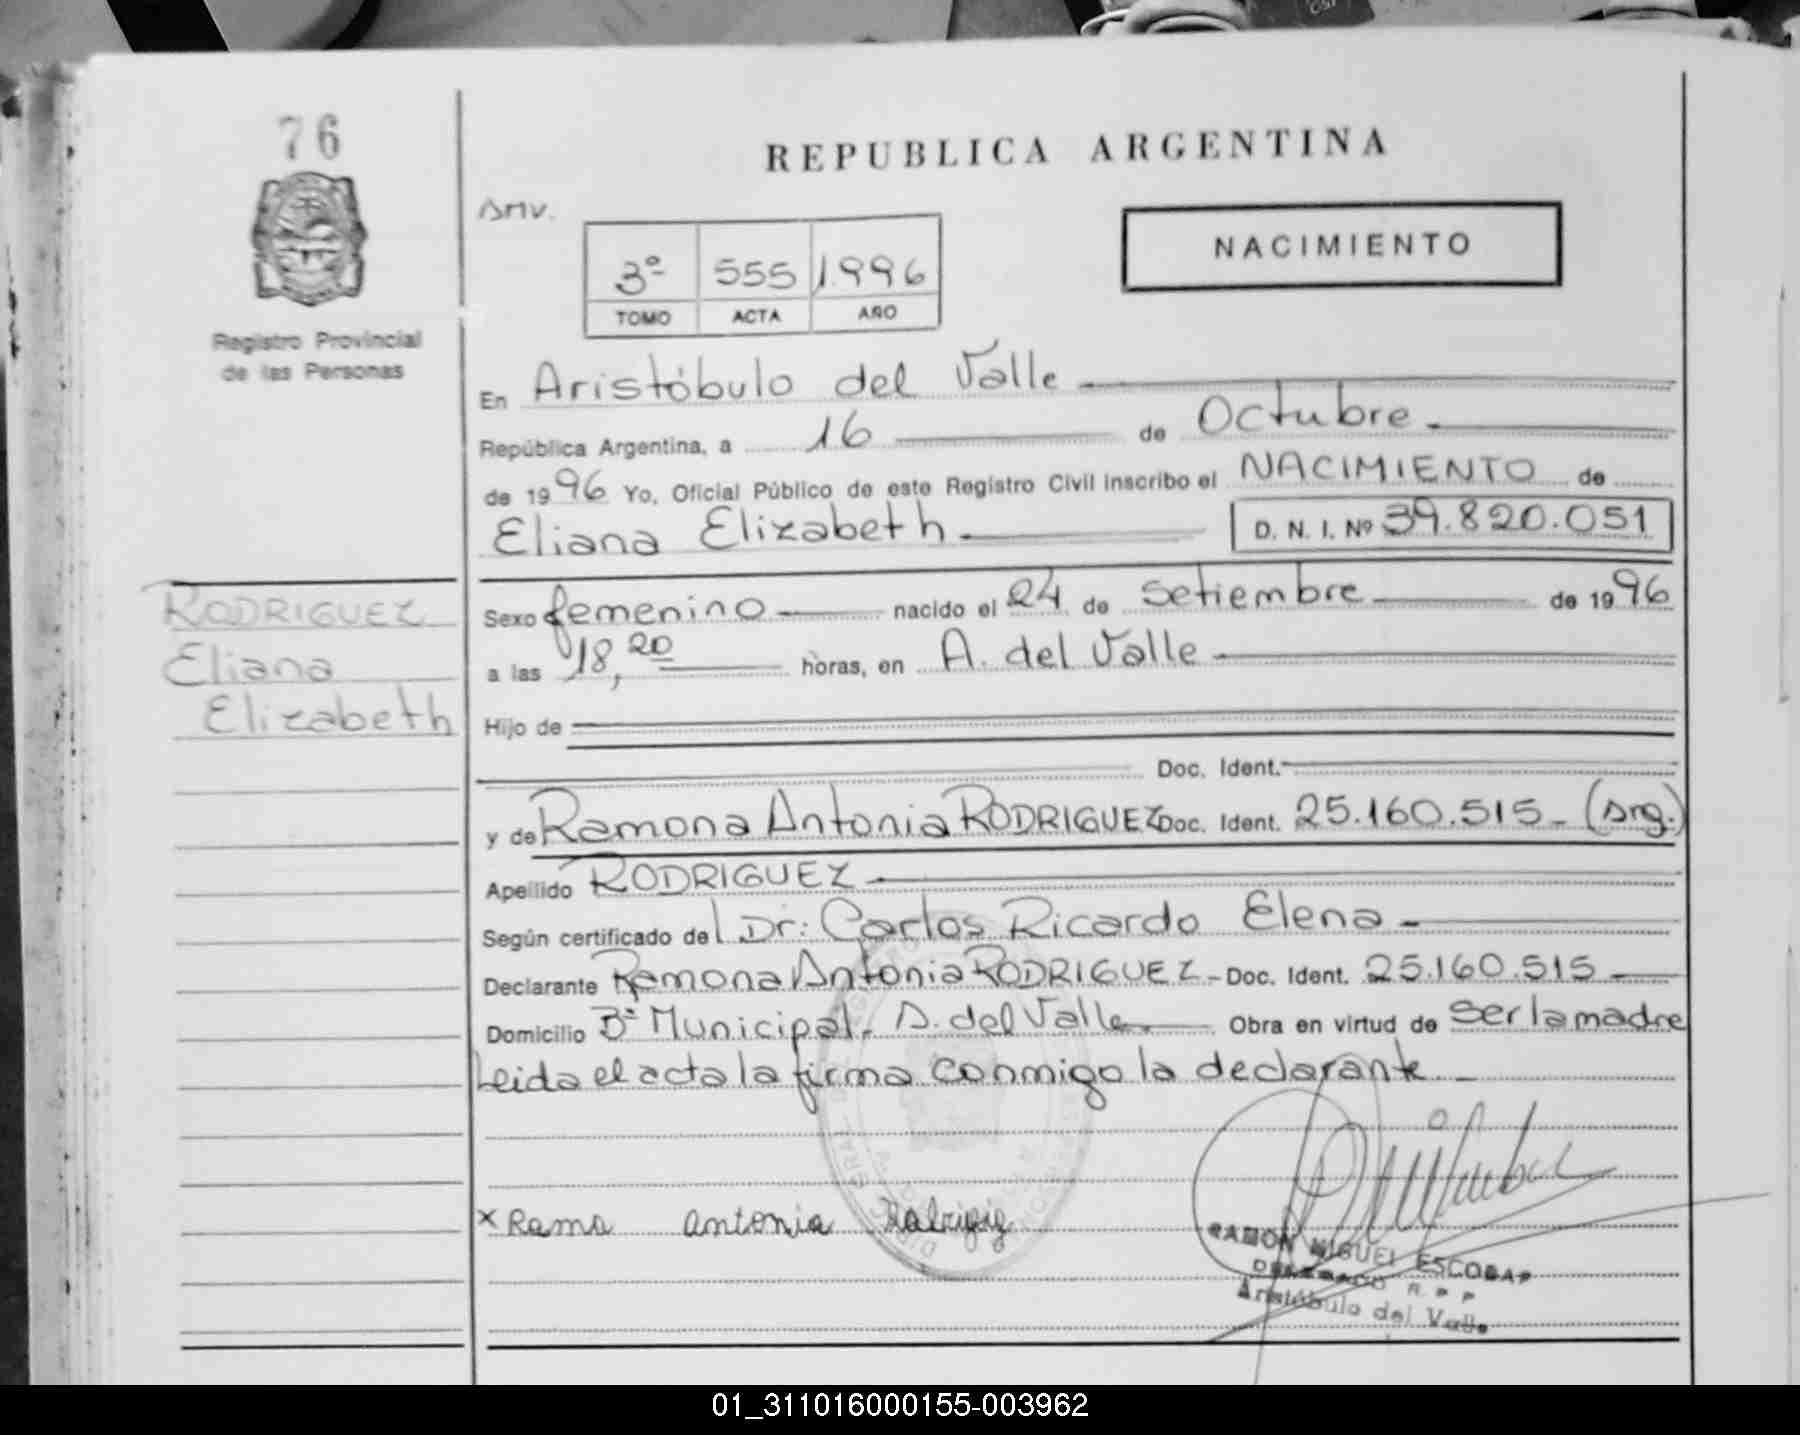 76
REPUBLICA ARGENTINA
NACIMIENTO
3º 555 1.996
TOMO ACTA AÑO
Registro Provincial
de las Personas
En Aristóbulo del Valle
República Argentina, a 16 de Octubre
de 1996 Yo, Oficial Público de este Registro Civil inscribo el NACIMIENTO de
Eliana Elizabeth D. N. I. Nº 39.820.051
RODRIGUEZ
Eliana
Elizabeth
Sexo femenino nacido el 24 de Setiembre de 1996
a las 18,20 horas, en A. del Valle
Hijo de
Doc. Ident.
y de Ramona Antonia RODRIGUEZ Doc. Ident. 25.160.515 - (Arg.)
Apellido RODRIGUEZ
Según certificado del Dr: Carlos Ricardo Elena
Declarante Ramona Antonia RODRIGUEZ - Doc. Ident. 25.160.515
Domicilio Bº Municipal - A. del Valle Obra en virtud de ser la madre
Leida el acta la firma conmigo la declarante
x Rama antonia
RAMON MIGUEL ESCOBAR
R. P. P.
Aristóbulo del Valle
01_311016000155-003962